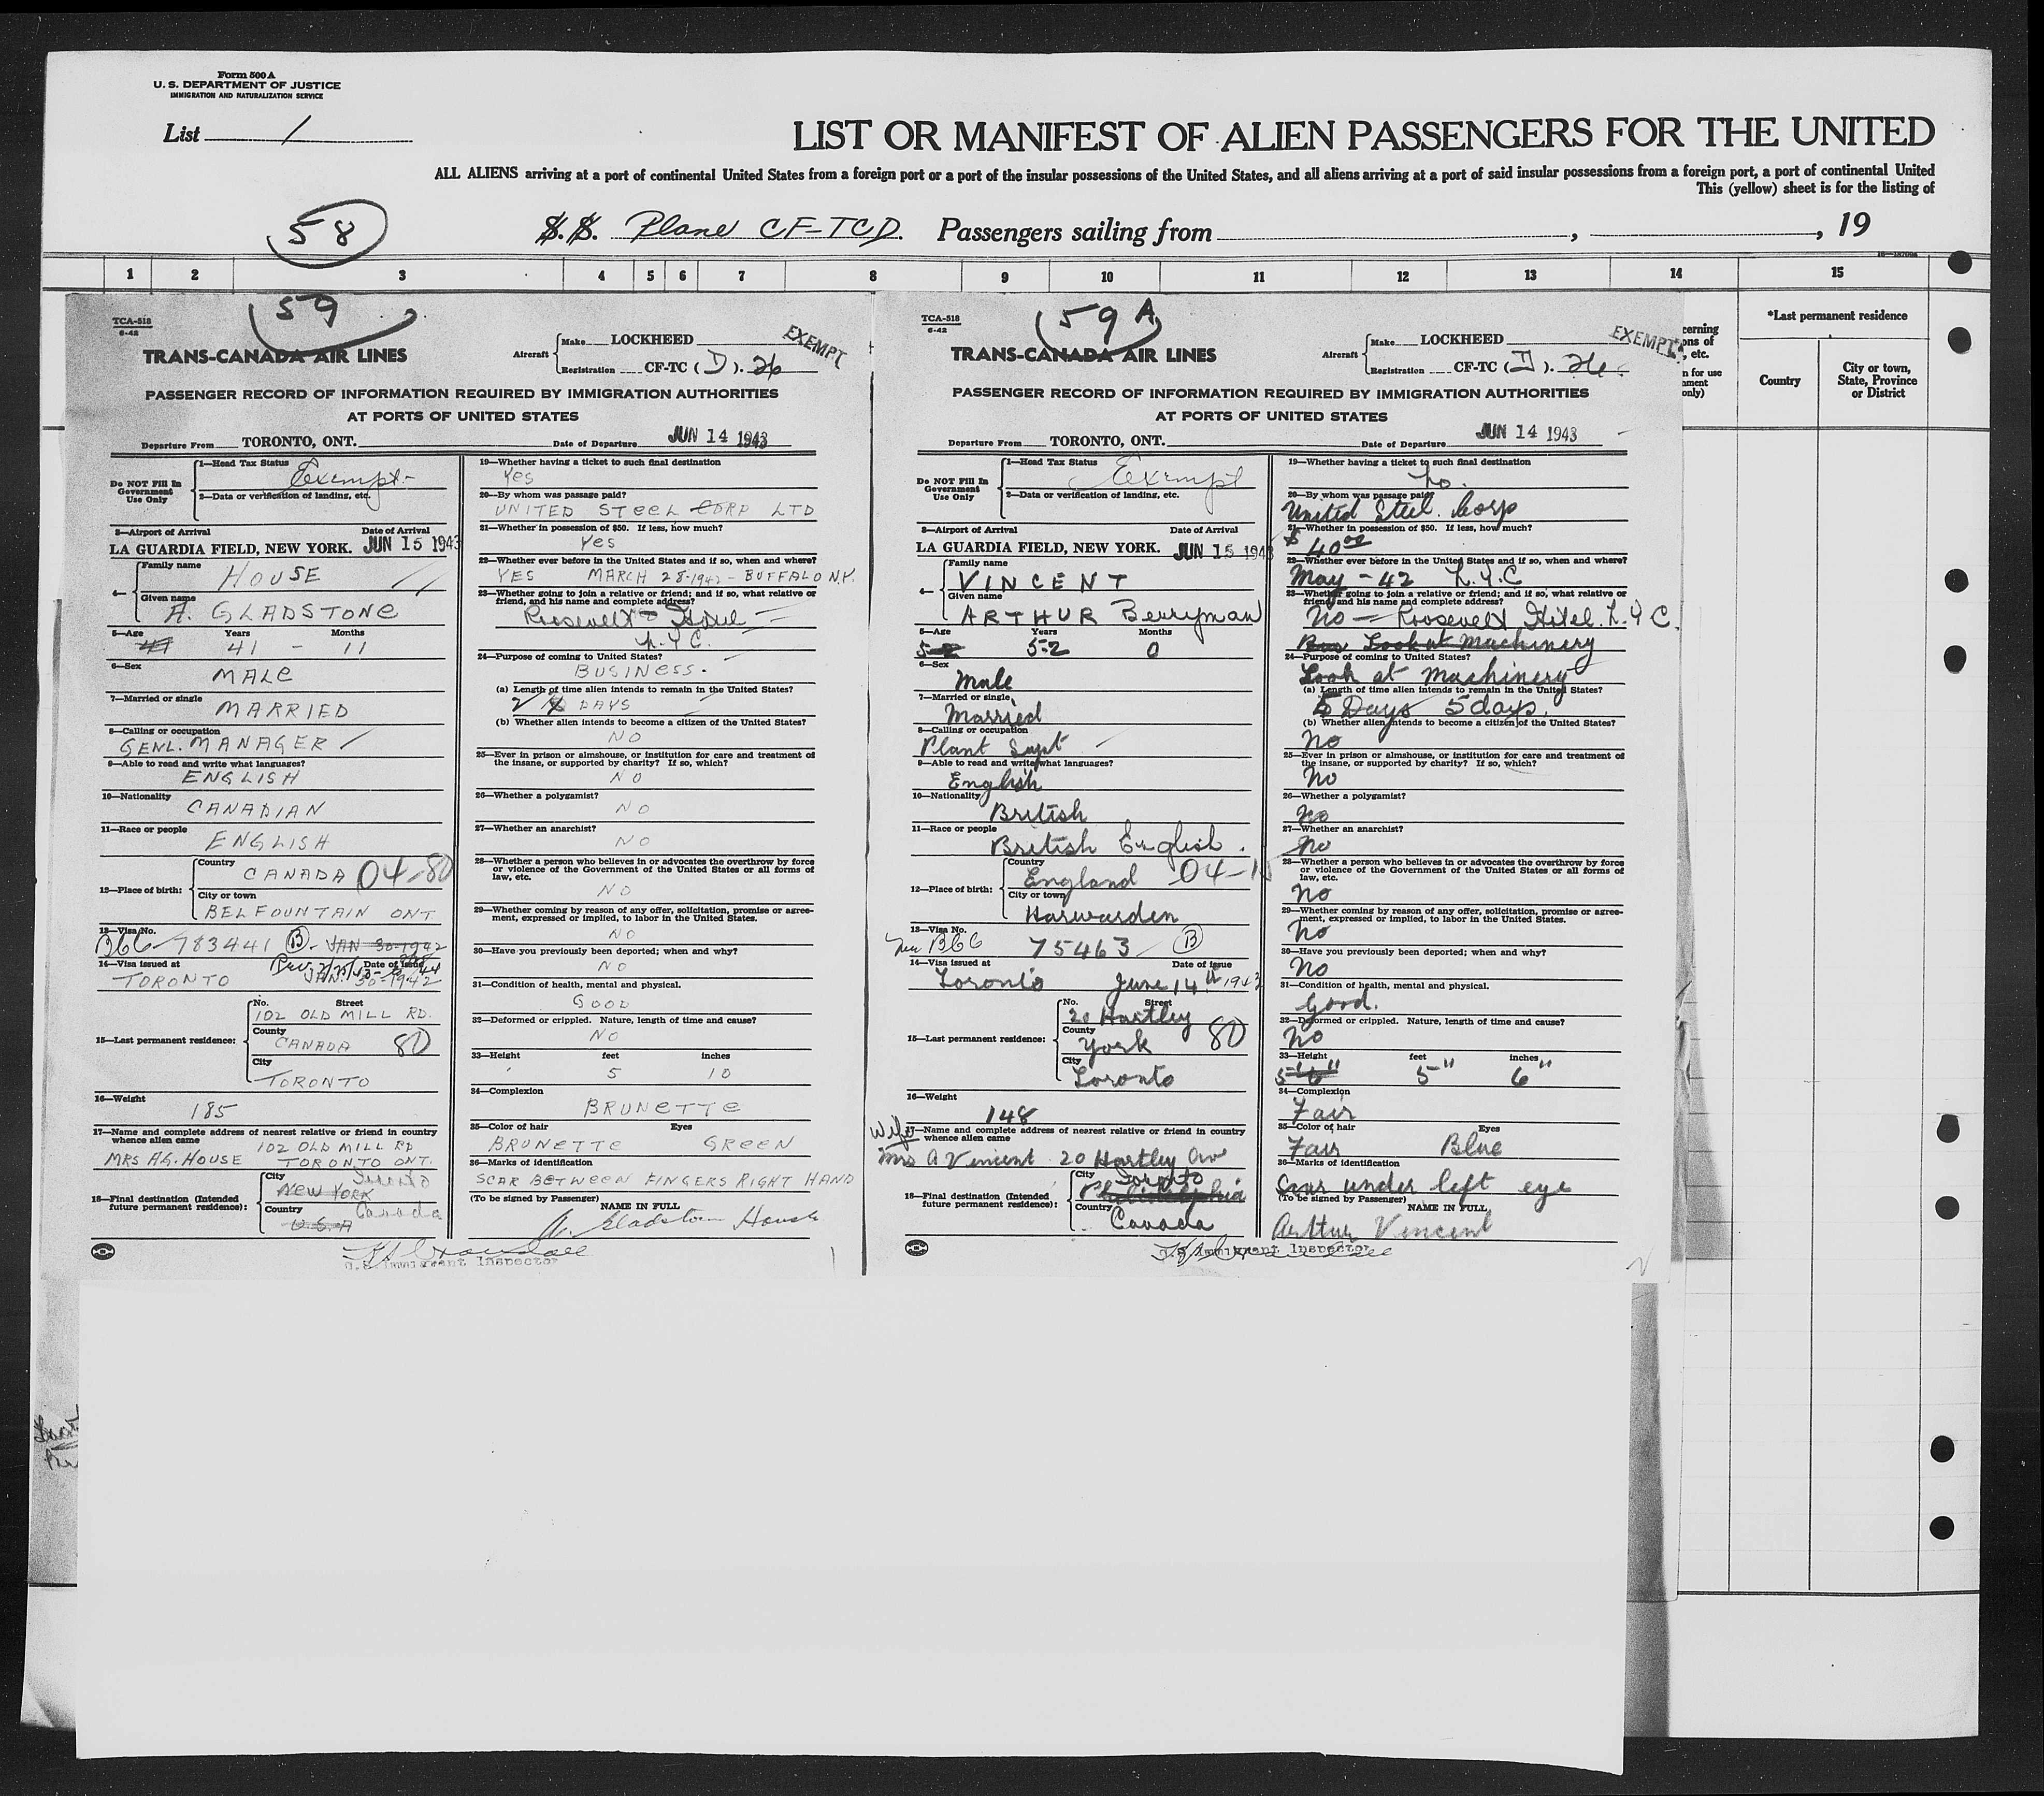 Form 500 A
U. S. DEPARTMENT OF JUSTICE
IMMIGRATION AND NATURALIZATION SERVICE
List 1
LIST OR MANIFEST OF ALIEN PASSENGERS FOR THE UNITED
ALL ALIENS arriving at a port of continental United States from a foreign port or a port of the insular possessions of the United States, and all aliens arriving at a port of said insular possessions from a foreign port, a port of continental United
This (yellow) sheet is for the listing of
58
S.S. Plane CF-TCD. Passengers sailing from , , 19
1 2 3 4 5 6 7 8 9 10 11 12 13 14 15
*Last permanent residence
Country
City or town, State, Province or District
59
TCA-518
6-42
TRANS-CANADA AIR LINES
Aircraft
Make LOCKHEED
Registration CF-TC (D). 26
EXEMPT
PASSENGER RECORD OF INFORMATION REQUIRED BY IMMIGRATION AUTHORITIES
AT PORTS OF UNITED STATES
Departure From TORONTO, ONT. Date of Departure JUN 14 1943
Do NOT Fill In Government Use Only
1—Head Tax Status Exempt-
2—Data or verification of landing, etc.
3—Airport of Arrival Date of Arrival
LA GUARDIA FIELD, NEW YORK. JUN 15 1943
4— Family name
HOUSE
Given name
A. GLADSTONE
5—Age Years Months
41 - 11
6—Sex
MALE
7—Married or single
MARRIED
8—Calling or occupation
GENL. MANAGER
9—Able to read and write what languages?
ENGLISH
10—Nationality
CANADIAN
11—Race or people
ENGLISH
12—Place of birth: Country
CANADA 04-80
City or town
BELFOUNTAIN ONT
13—Visa No.
783441 B - JAN 30-1942
14—Visa issued at Date of Issue
TORONTO JAN. 30-1942
15—Last permanent residence:
No. Street
102 OLD MILL RD.
County
CANADA 80
City
TORONTO
16—Weight
185
17—Name and complete address of nearest relative or friend in country
whence alien came 102 OLD MILL RD
MRS A.G. HOUSE TORONTO ONT.
18—Final destination (Intended future permanent residence):
City Toronto
NEW YORK
Country Canada
U.S.A
19—Whether having a ticket to such final destination
Yes
20—By whom was passage paid?
UNITED STEEL CORP LTD
21—Whether in possession of $50. If less, how much?
Yes
22—Whether ever before in the United States and if so, when and where?
YES MARCH 28-1942 - BUFFALO N.Y.
23—Whether going to join a relative or friend; and if so, what relative or
friend, and his name and complete address?
Roosevelt Hotel
N.Y.C.
24—Purpose of coming to United States?
BUSINESS.
(a) Length of time alien intends to remain in the United States?
2 DAYS
(b) Whether alien intends to become a citizen of the United States?
NO
25—Ever in prison or almshouse, or institution for care and treatment of
the insane, or supported by charity? If so, which?
NO
26—Whether a polygamist?
NO
27—Whether an anarchist?
NO
28—Whether a person who believes in or advocates the overthrow by force
or violence of the Government of the United States or all forms of
law, etc.
NO
29—Whether coming by reason of any offer, solicitation, promise or agree-
ment, expressed or implied, to labor in the United States.
NO
30—Have you previously been deported; when and why?
NO
31—Condition of health, mental and physical.
GOOD
32—Deformed or crippled. Nature, length of time and cause?
NO
33—Height feet inches
5 10
34—Complexion
BRUNETTE
35—Color of hair Eyes
BRUNETTE GREEN
36—Marks of identification
SCAR BETWEEN FINGERS RIGHT HAND
(To be signed by Passenger) NAME IN FULL
A. Gladstone House
U.S. Immigrant Inspector
59 A
TCA-518
6-42
TRANS-CANADA AIR LINES
Aircraft
Make LOCKHEED
Registration CF-TC (D). 26
EXEMPT
PASSENGER RECORD OF INFORMATION REQUIRED BY IMMIGRATION AUTHORITIES
AT PORTS OF UNITED STATES
Departure From TORONTO, ONT. Date of Departure JUN 14 1943
Do NOT Fill In Government Use Only
1—Head Tax Status Exempt
2—Data or verification of landing, etc.
3—Airport of Arrival Date of Arrival
LA GUARDIA FIELD, NEW YORK. JUN 15 1943
4— Family name
VINCENT
Given name
ARTHUR Berryman
5—Age Years Months
52 52 0
6—Sex
Male
7—Married or single
Married
8—Calling or occupation
Plant Supt
9—Able to read and write what languages?
English
10—Nationality
British
11—Race or people
British English.
12—Place of birth: Country
England
City or town
Harwarden
13—Visa No.
New B66 75463 B
14—Visa issued at Date of issue
Toronto June 14th 1943
15—Last permanent residence:
No. Street
20 Hartley
County
York 80
City
Toronto
16—Weight
148
Wife
17—Name and complete address of nearest relative or friend in country
whence alien came
Mrs A Vincent 20 Hartley Ave
18—Final destination (Intended future permanent residence):
City Toronto
Philadelphia
Country
Canada
19—Whether having a ticket to such final destination
No.
20—By whom was passage paid?
United Steel Corp
21—Whether in possession of $50. If less, how much?
$ 40.00
22—Whether ever before in the United States and if so, when and where?
May - 42 N.Y.C
23—Whether going to join a relative or friend; and if so, what relative or
friend, and his name and complete address?
No — Roosevelt Hotel. N.Y.C.
Look at Machinery
24—Purpose of coming to United States?
Look at Machinery
(a) Length of time alien intends to remain in the United States?
5 Days 5 days.
(b) Whether alien intends to become a citizen of the United States?
No
25—Ever in prison or almshouse, or institution for care and treatment of
the insane, or supported by charity? If so, which?
No
26—Whether a polygamist?
No
27—Whether an anarchist?
No
28—Whether a person who believes in or advocates the overthrow by force
or violence of the Government of the United States or all forms of
law, etc.
No
29—Whether coming by reason of any offer, solicitation, promise or agree-
ment, expressed or implied, to labor in the United States.
No
30—Have you previously been deported; when and why?
No
31—Condition of health, mental and physical.
Good.
32—Deformed or crippled. Nature, length of time and cause?
No
33—Height feet inches
5'6" 5" 6"
34—Complexion
Fair
35—Color of hair Eyes
Fair Blue
36—Marks of identification
Scar under left eye
(To be signed by Passenger) NAME IN FULL
Arthur Vincent
U.S. Immigrant Inspector